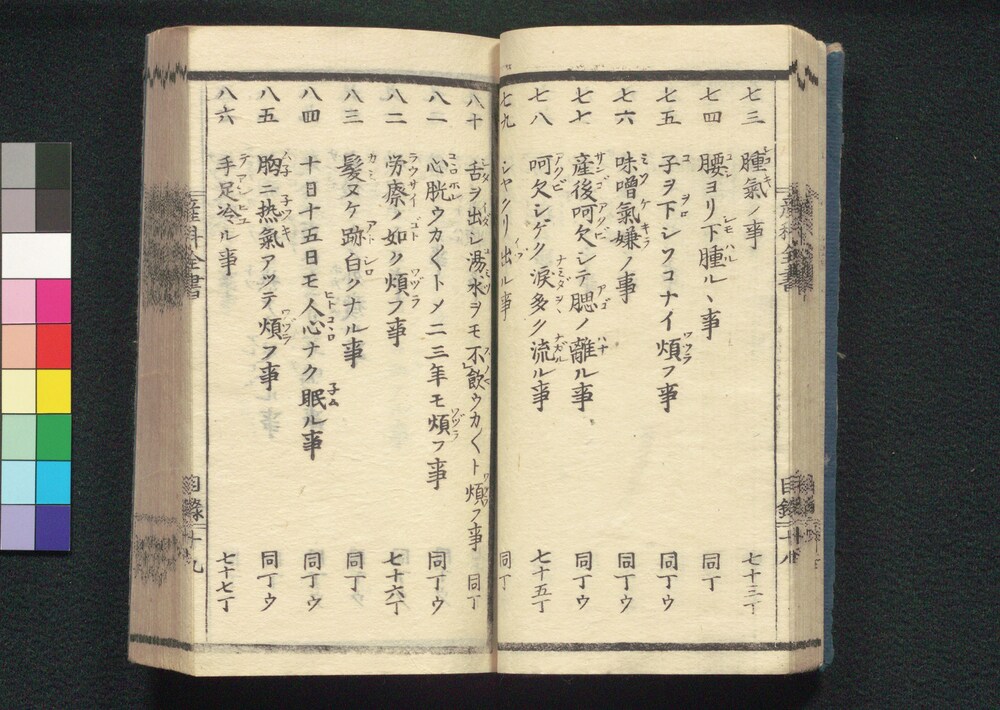 七三 腫氣ノ事 七十三丁
七四 腰ヨリ下腫ルヽ事 同丁
七五 子ヲ下シソコナイ煩フ事 同丁ウ
七六 味噌氣嫌ノ事 同丁ウ
七七 産後呵欠シテ腮ノ離ル事 同丁ウ
七八 呵欠シゲク涙多ク流ル事 七十五丁
七九 シヤクリ出ル事 同丁
八十 舌ヲ出シ湯水ヲモ不飲ウカ〱ト煩フ事 同丁
八一 心脱ウカ〱トメ二三年モ煩フ事 同丁ウ
八二 労瘵ノ如ク煩フ事 七十六丁
八三 髪ヌケ跡白クナル事 同丁
八四 十日十五日モ人心ナク眠ル事 同丁ウ
八五 胸ニ热氣アツテ煩フ事 同丁ウ
八六 手足冷ル事 七十七丁
産科全書
目録
十九